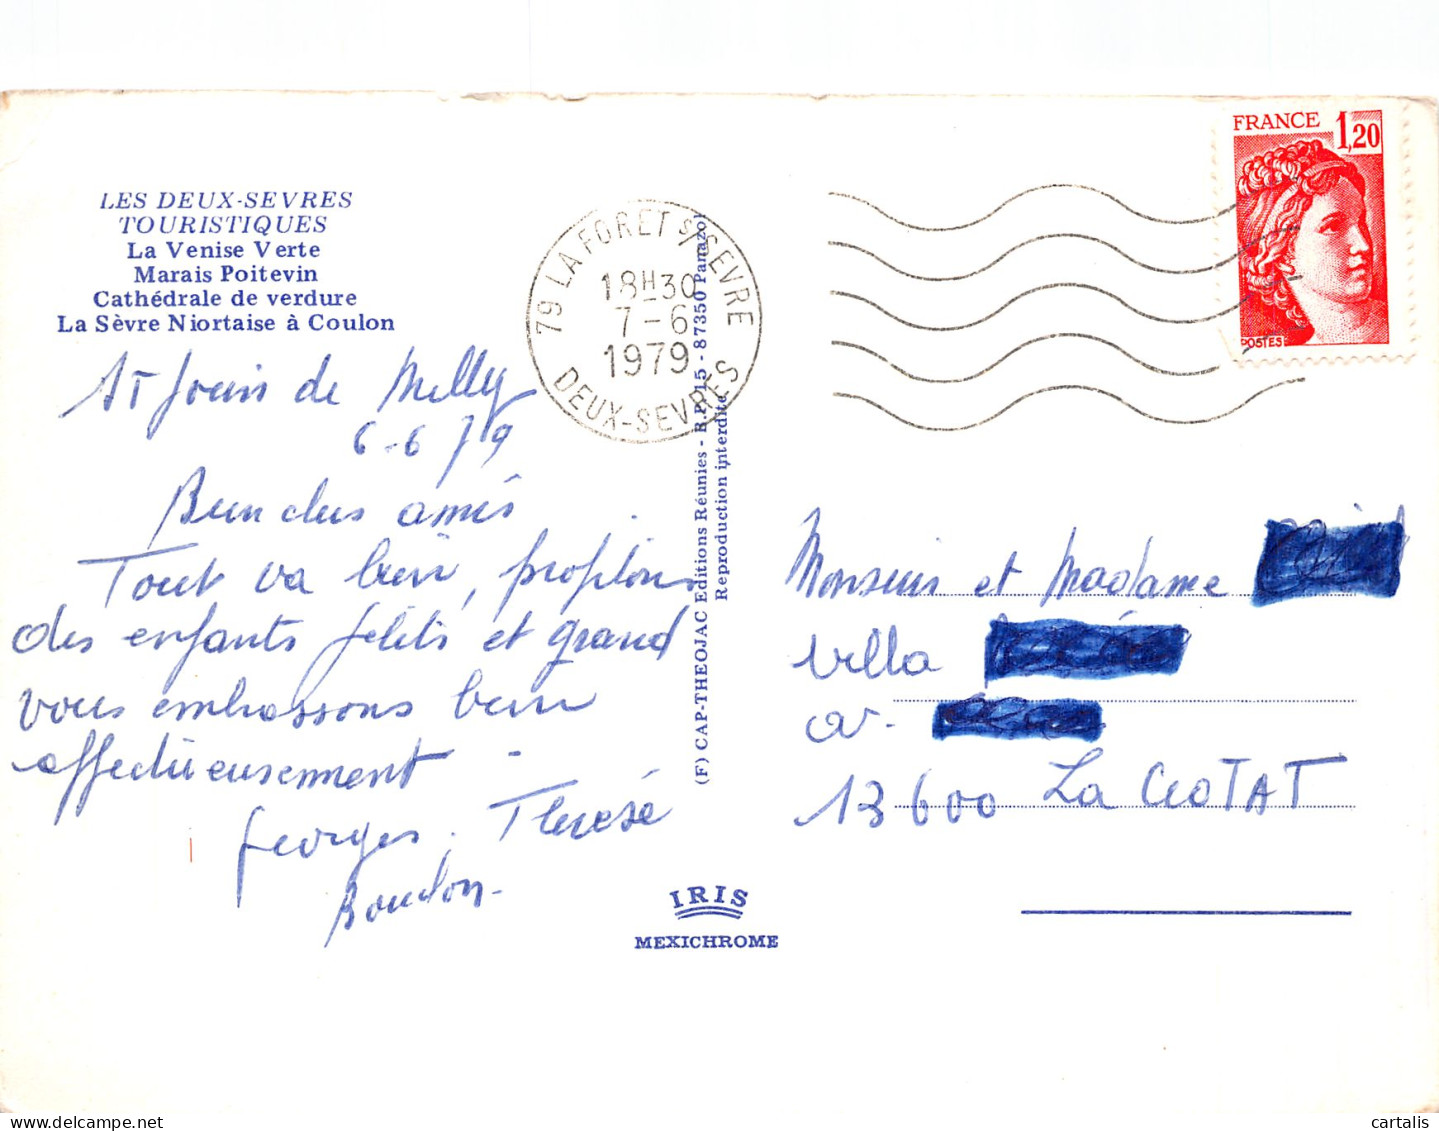 LES DEUX-SEVRES
TOURISTIQUES
La Venise Verte
Marais Poitevin
Cathédrale de verdure
La Sèvre Niortaise à Coulon
St Jouin de Milly
6-6 79
Bien chers amis
Tout va bien, profitons
des enfants petits et grand
vous embrassons bien
affectueusement -
Georges. Thérèse
Boudon-
79 LA FORET S/SEVRE
18H30
7-6
1979
DEUX-SEVRES
(F) CAP-THEOJAC Editions Réunies - B.P. 15 - 87350 Panazol
Reproduction interdite
IRIS
MEXICHROME
FRANCE 1,20
POSTES
Monsieur et Madame
Villa
av-
13600 La CIOTAT
cartalis